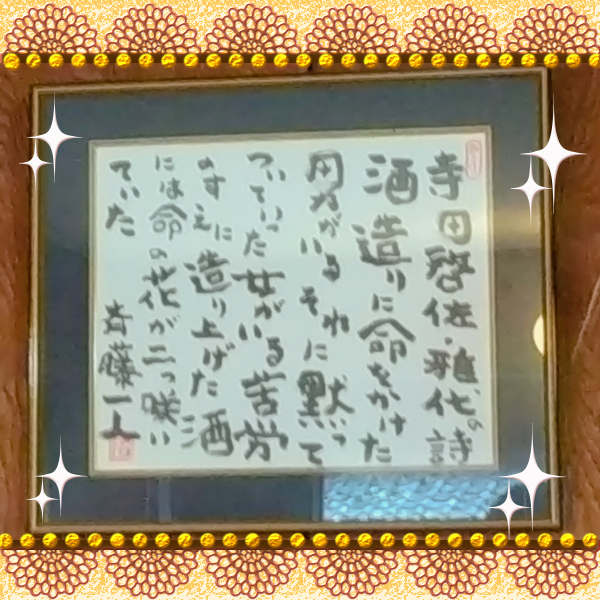 寺田啓佐・雅代の詩
酒造りに命をかけた
男がいるそれに黙って
ついていった女がいる苦労
のすえに造り上げた酒
には命の花が二つ咲い
ていた
斉藤一人